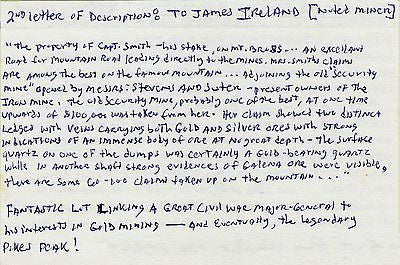 2ND LETTER OF DESCRIPTION: TO JAMES IRELAND [NOTED MINER]
"THE PROPERTY OF CAPT. SMITH - HIS STAKE, ON MT. BROSS... AN EXCELLANT
ROAD FOR MOUNTAIN ROAD LEADING DIRECTLY TO THE MINES. MRS. SMITHS CLAIM
ARE AMONG THE BEST ON THE FAMOUS MOUNTAIN... ADJOINING THE OLD SECURITY
MINE" OPENED BY MESSRS: STEVENS AND SUTER - PRESENT OWNERS OF THE
IRON MINE. THE OLD SECURITY MINE, PROBABLY ONE OF THE BEST, AT ONE TIME
UPWARDS OF $100,000 WAS TAKEN FROM: HER CLAIM SHOWED TWO DISTINCT
LEDGES WITH VEINS CARRYING BOTH GOLD AND SILVER ORES WITH STRONG
INDICATIONS OF AN IMMENSE BODY OF ORE AT NO GREAT DEPTH - THE SURFACE
QUARTZ ON ONE OF THE DUMPS WAS CERTAINLY A GOLD-BEARING QUARTZ
WHILE IN ANOTHER SHAFT STRONG EVIDENCES OF GALENA ORE WERE VISIBLE,
THERE ARE SOME 60-100 CLAIMS TAKEN UP ON THE MOUNTAIN..."
FANTASTIC LOT LINKING A GREAT CIVIL WAR MAJOR-GENERAL TO
HIS INTERESTS IN GOLD MINING — AND EVENTUALLY, THE LEGENDARY
PIKES PEAK!